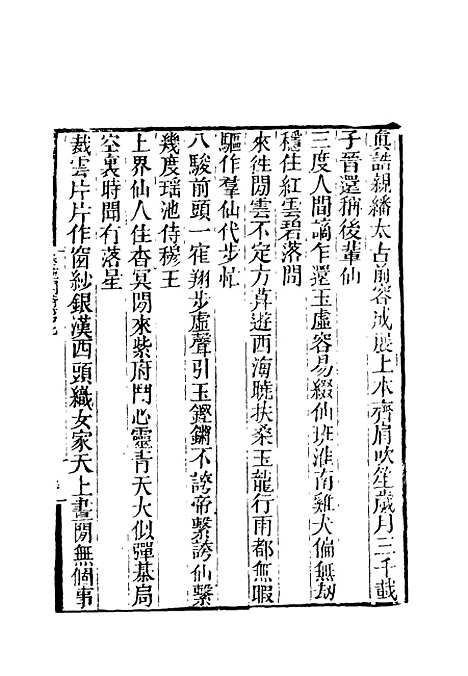 眞誥親繙太古前容成晨上本齊肩吹笙歲月三千載
子晉還稱後輩仙
三度人間謫乍還玉虛容易綴仙班淮南雞犬偏無劫
穩住紅雲碧落間
來徃閒雲不定方莫遊西海曉扶桑玉龍行雨都無暇
驅作羣仙代步忙
八駿前頭一隺翔步虛聲引玉鏗鏘不誇帝繫誇仙繫
幾度瑶池侍穆王
上界仙人住杳冥閒來紫府鬥心靈青天大似彈棊局
空裏時聞有落星
裁雲片片作窗紗銀漢西頭織女家天上晝閒無個事